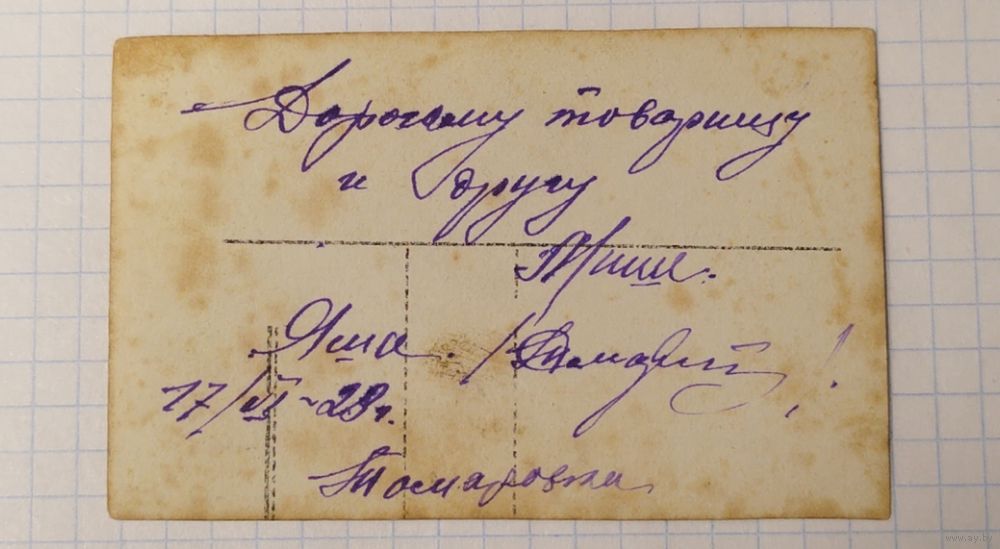 Дорогому товарищу
и другу
Мише.
Яша.
17/VI-29г.
Томаровка
www.ay.by